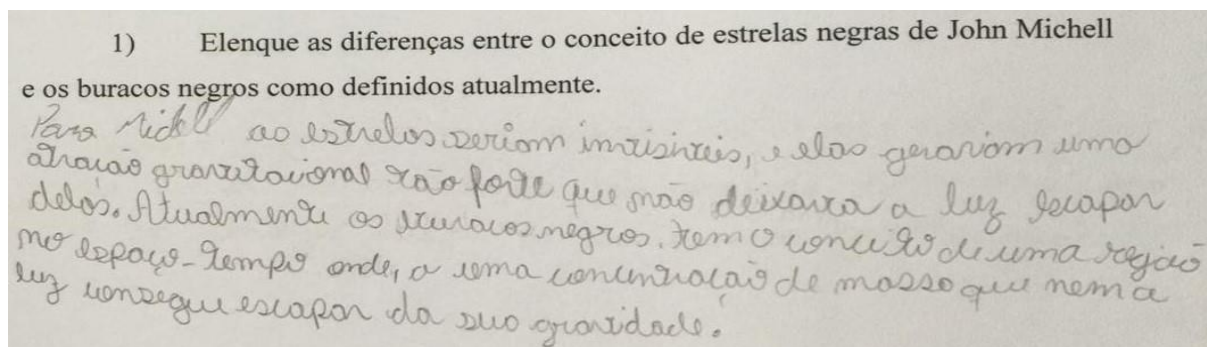 1) Elenque as diferenças entre o conceito de estrelas negras de John Michell
e os buracos negros como definidos atualmente.
Para Michell as estrelas seriam invisíveis, e elas gerariam uma
atração gravitacional tão forte que não deixava a luz escapar
delas. Atualmente os buracos negros. tem o conceito de uma região
no espaço-tempo onde, a uma concentração de massa que nem a
luz consegue escapar da sua gravidade.